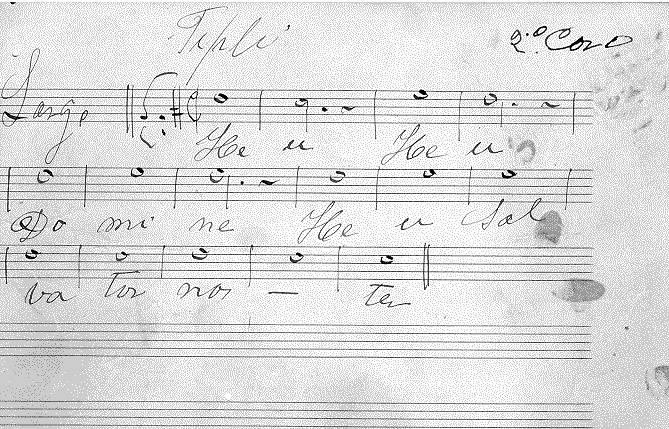 Tipli
2.º Coro
Largo
He u He u
Do mi ne He u Sal
va tor nos — ter